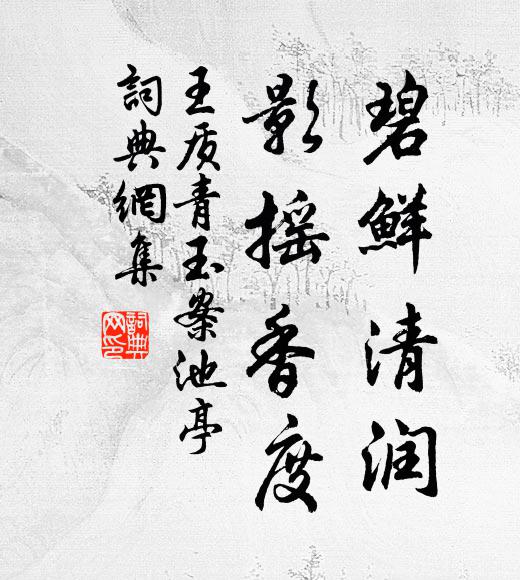 碧鲜清润
影摇香度
王质青玉案池亭
詞典網集
詞典网印